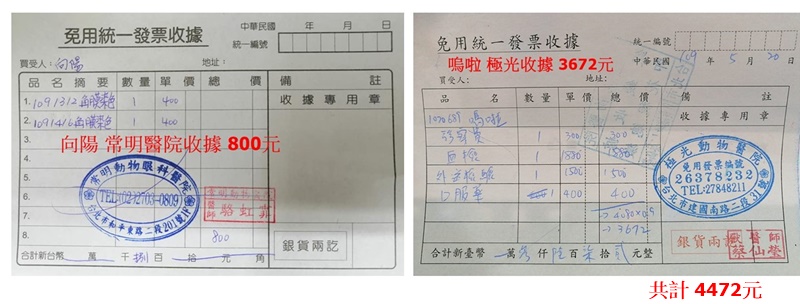 免用統一發票收據
中華民國 年 月 日
統一編號
買受人：向陽 地址：
品名摘要 數量 單價 總價 備註
1. 1091312角膜染色 1 400
收據專用章
2. 1091416角膜染色 1 400
3.
向陽 常明醫院收據 800元
4.
5.
6.
常明動物眼科醫院
TEL:(02)2703-0809
台北市和平東路二段201號1F
醫師 駱虹菁
7.
8. 800
銀貨兩訖
合計新台幣 萬 千 捌 百 拾 元 角
免用統一發票收據
統一編號
中華民國 109 年 5 月 20 日
嗚啦 極光收據 3672元
買受人： 地址：
品名 數量 單價 總價 備註
嗚啦
收據專用章
1 300 300
血檢 1 1880 1880
1 1500 1500
口服藥 1 400 400
極光動物醫院
免用發票編號
26378232
TEL:27848211
台北市建國南路二段
→4080×0.9
→3672
銀貨兩訖
獸醫師
蔡仙瑩
合計新臺幣 萬 參 仟 陸 百 柒 拾 貳 元整
共計 4472元